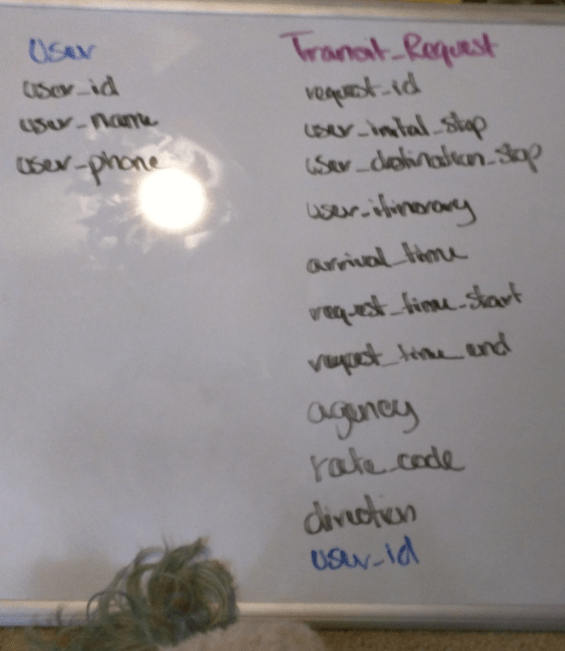 User
user_id
user_name
user_phone
Transit_Request
request_id
user_initial_stop
user_destination_stop
user_itinorary
arrival_time
request_time_start
request_time_end
agency
rate_code
direction
user_id